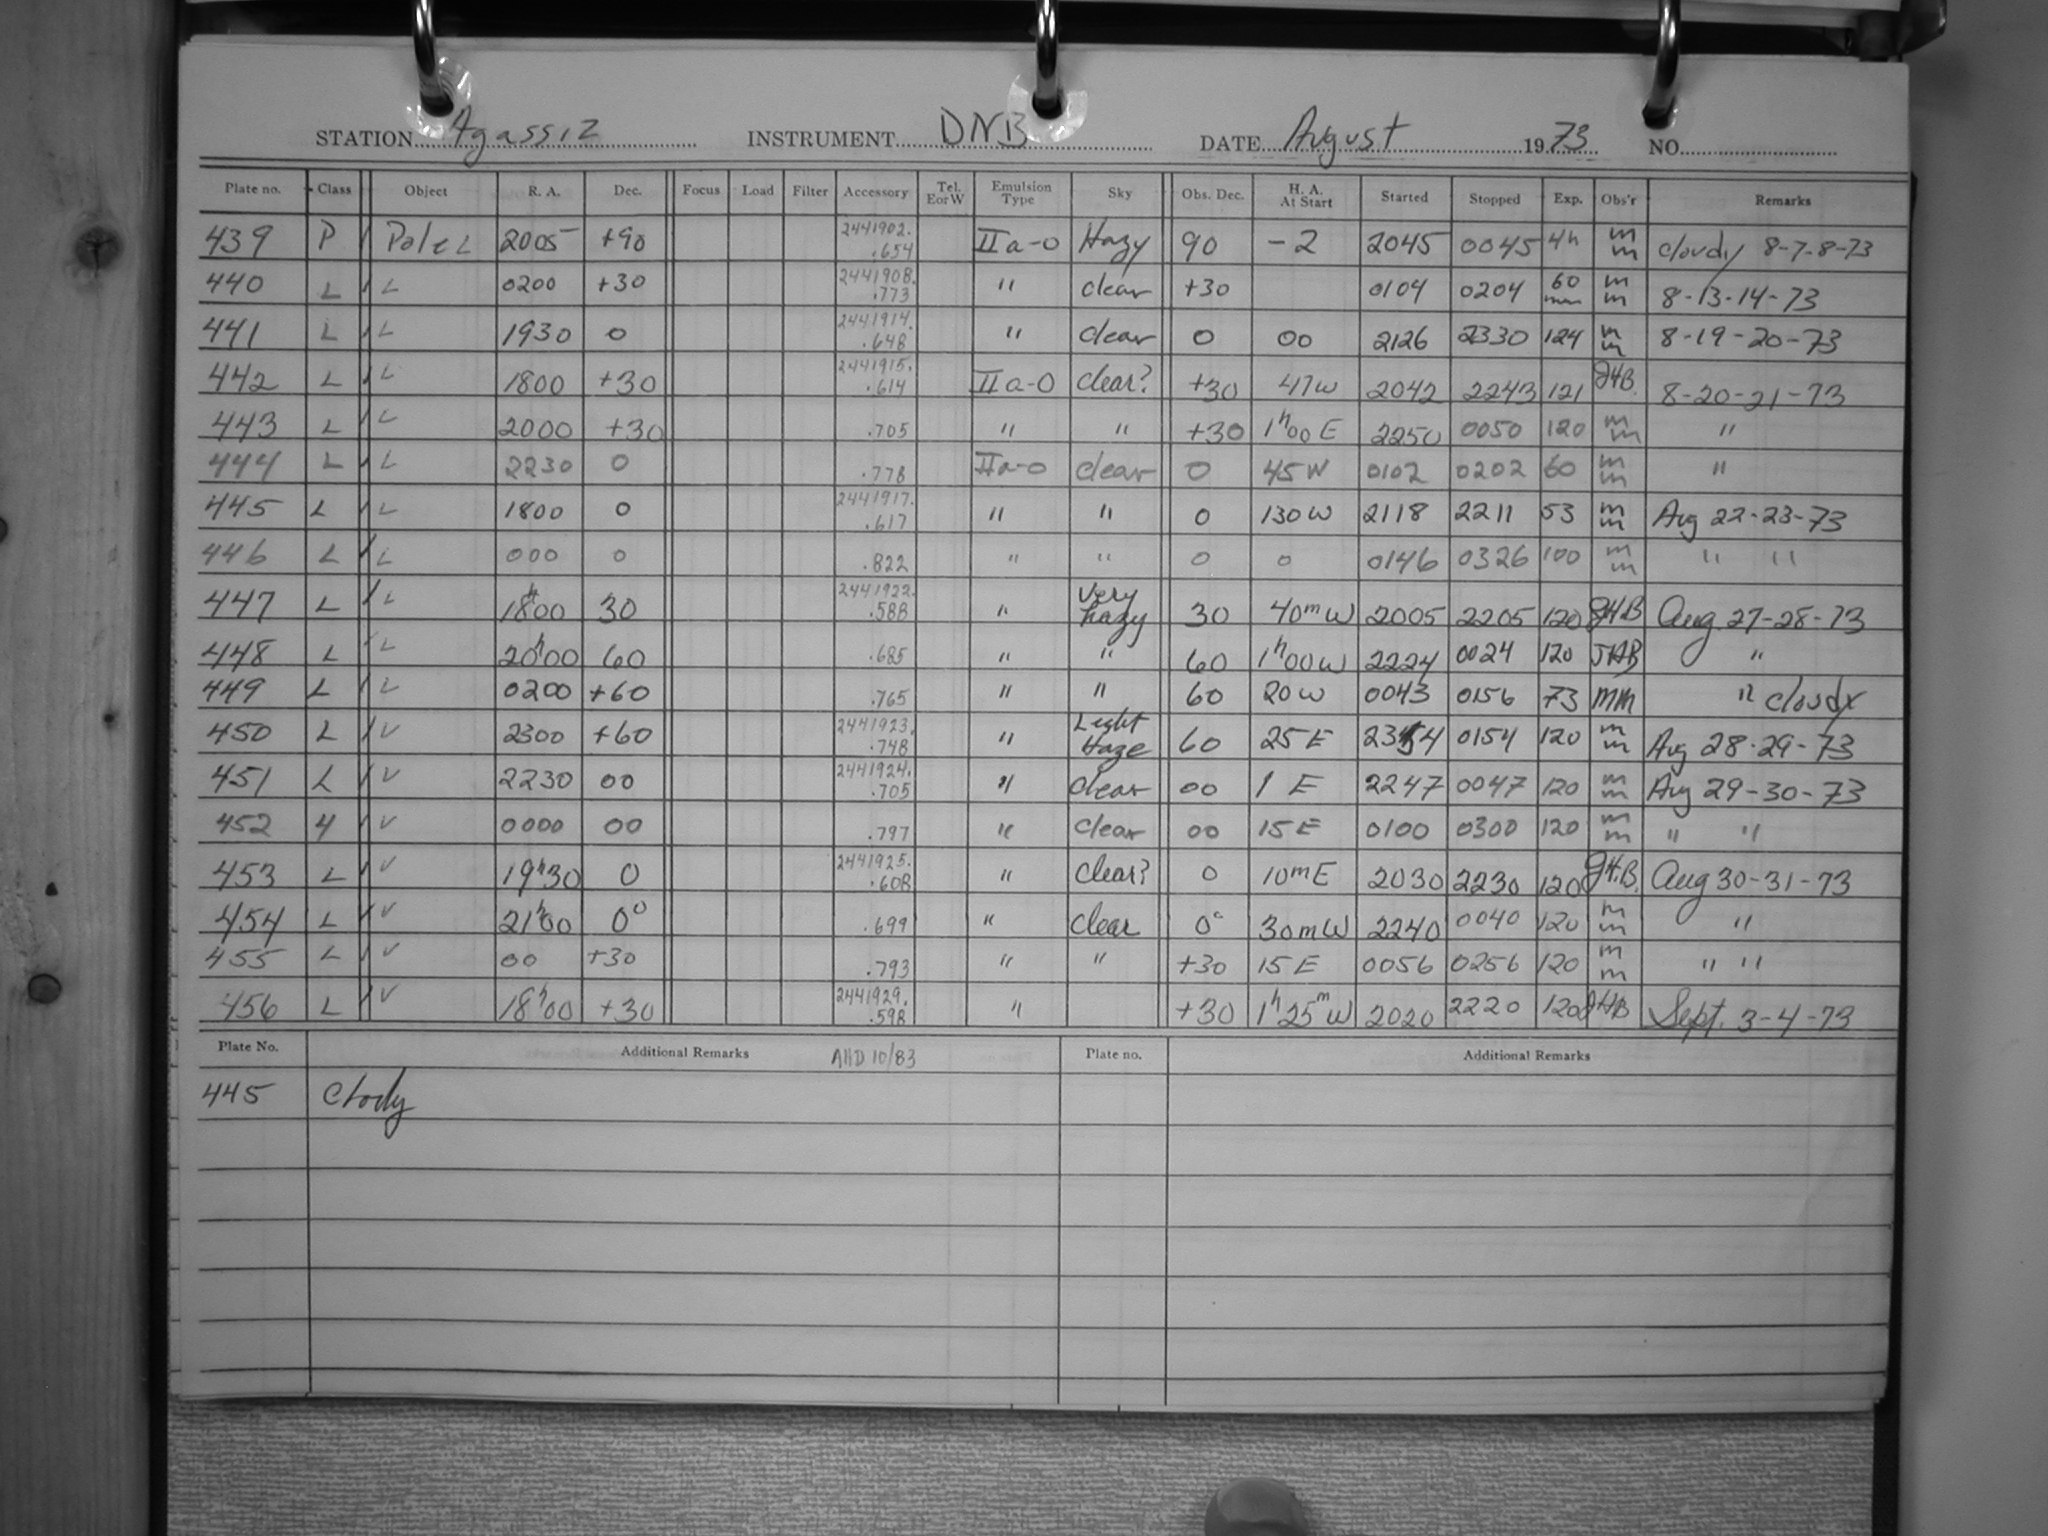 STATION Agassiz INSTRUMENT DNB DATE August 1973 NO.
Plate no. Class Object R. A. Dec. Focus Load Filter Accessory Tel. E or W Emulsion Type Sky Obs. Dec. H. A. At Start Started Stopped Exp. Obs'r Remarks
439 P Pole L 2005 +90 2441902. .654 IIa-O Hazy 90 -2 2045 0045 4h mm cloudy 8-7-8-73
440 L L 0200 +30 2441908. .773 " clear +30 0104 0204 60 min mm 8-13-14-73
441 L L 1930 0 2441914. .648 " clear 0 00 2126 2330 124 mm 8-19-20-73
442 L L 1800 +30 2441915. .614 IIa-O clear? +30 47W 2042 2243 121 JHB. 8-20-21-73
443 L L 2000 +30 .705 " " +30 1h00E 2250 0050 120 mm "
444 L L 2230 0 .778 IIa-O clear 0 45W 0102 0202 60 mm "
445 L L 1800 0 2441917. .617 " " 0 130W 2118 2211 53 mm Aug 22-23-73
446 L L 000 0 .822 " " 0 0 0146 0326 100 mm " "
447 L L 18h00 30 2441922. .588 " very hazy 30 40mW 2005 2205 120 JHB Aug 27-28-73
448 L L 20h00 60 .685 " " 60 1h00W 2224 0024 120 JHB "
449 L L 0200 +60 .765 " " 60 20W 0043 0156 73 MM " cloudy
450 L V 2300 +60 2441923. .748 " Light Haze 60 25E 2354 0154 120 mm Aug 28-29-73
451 L V 2230 00 2441924. .705 " clear 00 1 E 2247 0047 120 mm Aug 29-30-73
452 4 V 0000 00 .797 " clear 00 15E 0100 0300 120 mm " "
453 L V 19h30 0 2441925. .608 " clear? 0 10mE 2030 2230 120 JH.B. Aug 30-31-73
454 L V 21h00 0° .699 " clear 0° 30mW 2240 0040 120 mm "
455 L V 00 +30 .793 " " +30 15E 0056 0256 120 mm " "
456 L V 18h00 +30 2441929. .598 " +30 1h25mW 2020 2220 120 JHB Sept. 3-4-73
Plate No. Additional Remarks AHD 10/83 Plate no. Additional Remarks
445 Clody